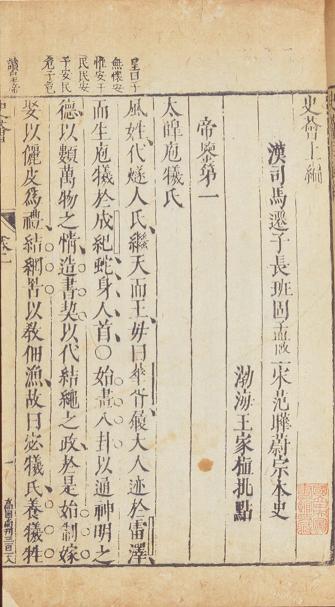 史薈上編
漢司馬遷子長班固孟堅 宋范曄蔚宗本史
渤海王家植批點
帝鑒第一
太皥庖犧氏
風姓代燧人氏繼天而王毋曰華胥履大人迹於雷澤
而生庖犧於成紀蛇身人首〇始畫八卦以通神明之
德以類萬物之情造書契以代結繩之政於是始制嫁
娶以儷皮爲禮結網罟以教佃漁故曰宓犧氏養犧牲
民民安
于安民
卷一